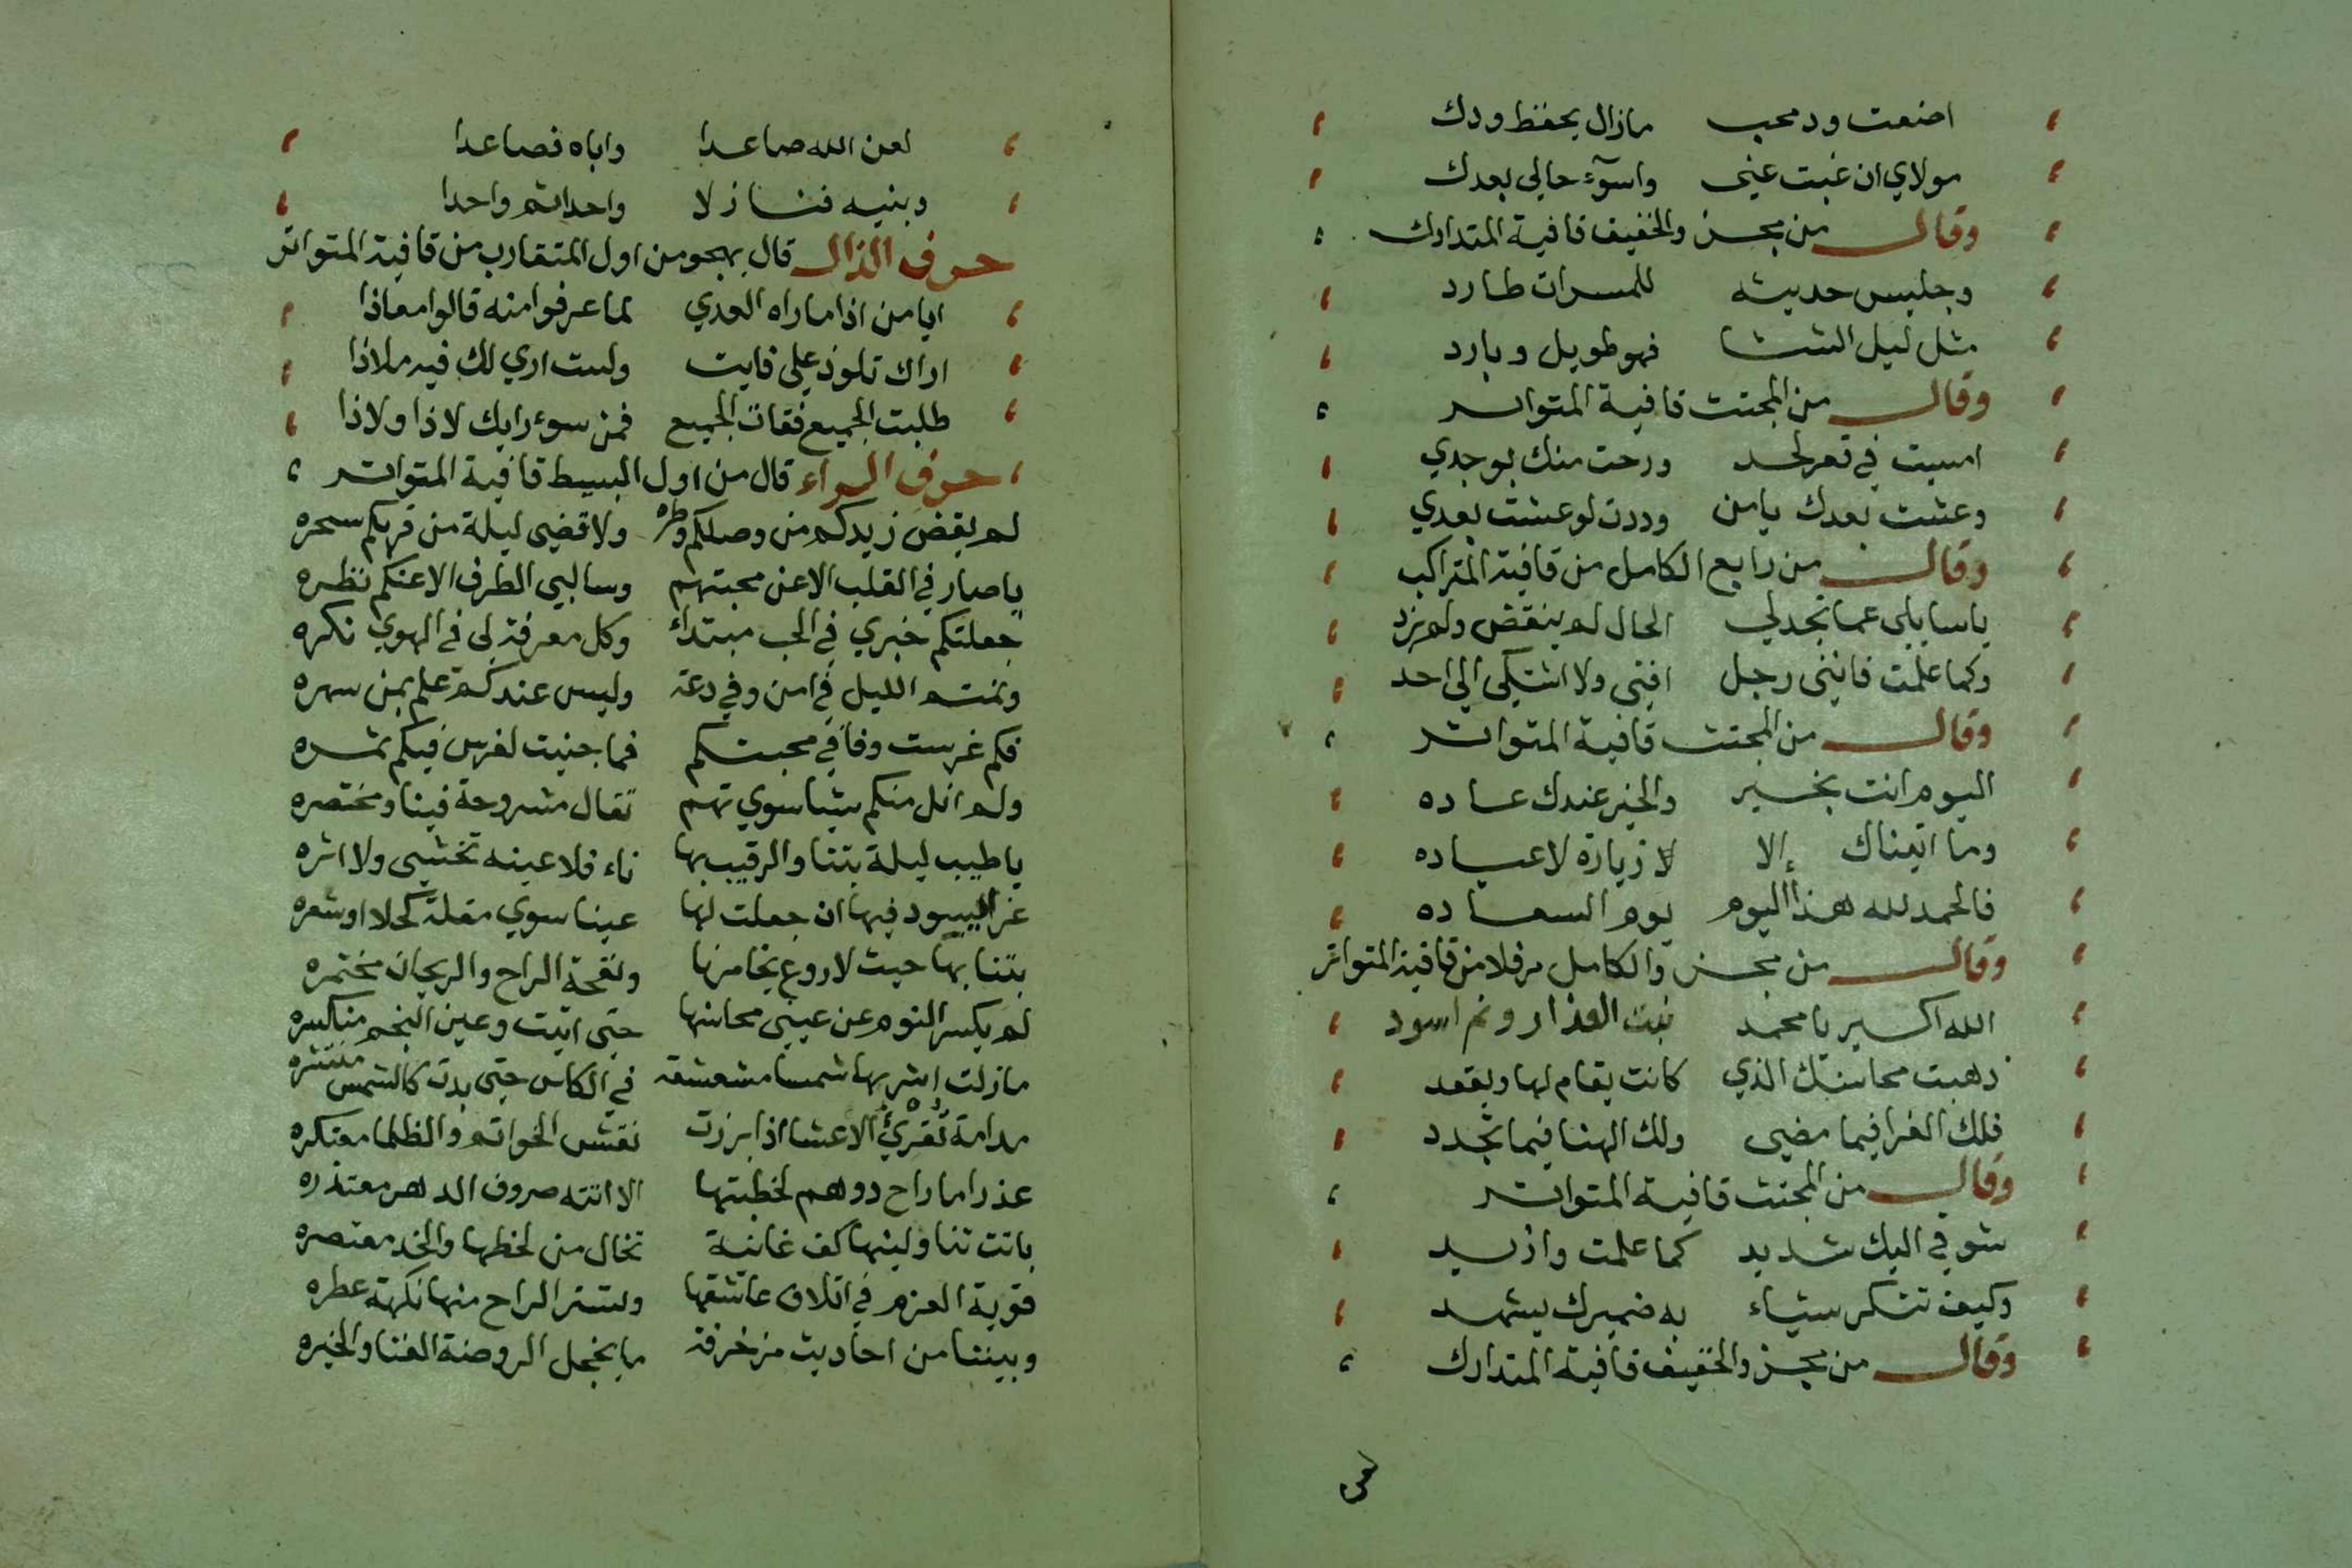 اضعت ود محب مازال يحفظ ودك
مولاي ان غبت عني واسوٓء حالي بعدك
وقال من مجزو الخفيف قافية المتدارك
وجليس حديثه للمسرات طارد
مثل ليل الشتا فهو طويل وبارد
وقال من المجتث قافية المتواتر
امسيت في قعر لحد ورحت منك بوجدي
وعشت بعدك يا من وددت لو عشت بعدي
وقال من رابع الكامل من قافية المتراكب
يا سايلي عما تجدلي الحال لم ينقض ولم يزد
وكما علمت فانني رجل افني ولا اشتكي الي احد
وقال من المجتث قافية المتواتر
اليوم انت بخير والخير عندك عاده
وما اتيناك إلا لا زيارة لا عياده
فالحمد لله هذا اليوم يوم السعاده
وقال من مجزو الكامل مرفلا من قافية المتواتر
الله اكبر يا محمد نبت العذار وثم اسود
ذهبت محاسنك الذي كانت يقام لها ويقعد
فلك العزا فيما مضي ولك الهنا فيما تجدد
وقال من المجتث قافية المتواتر
شوقي اليك شديد كما علمت وازيد
وكيف تنكر شياء به ضميرك يشهد
وقال من مجزو الخفيف قافية المتدارك
لعن الله صاعدا واباه فصاعدا
وبنيه فنازلا واحدا ثم واحدا
حرف الذال قال يهجو من اول المتقارب من قافية المتواتر
ايا من اذا ما راه العدي لما عرفوا منه قالوا معاذا
اراك تلوذ علي فايت ولست اري لك فيه ملاذا
طلبت الجميع ففات الجميع فمن سوء رايك لا ذا ولا ذا
حرف الراء قال من اول البسيط قافية المتواتر
لم يقض زيدكم من وصلكم وطره ولا قضي ليلة من قربكم سحره
يا صار في القلب الا عن محبتهم وسالبي الطرف الا عنكم نظره
جعلتكم خبري في الحب مبتداء وكل معرفة لي في الهوي نكره
ونمتم الليل في امن وفي دعة وليس عندكم علم بمن سهره
فكم غرست وفا في محبتكم فما جنيت لغرس فيكم ثمره
ولم انل منكم شيئا سوي تهم تقال مشروحة فينا ومختصره
يا طيب ليلة بتنا والرقيب بها ناء فلا عينه تخشي ولا اثره
غرا ليسود فيها ان جعلت لها عينا سوي مقلة كحلا او شعره
بتنا بها حيث لا روع يخامرنها ونفحة الراح والريحان مختمره
لم يكسر النوم عن عيني محاسنها حتي اتيت وعين النجم منكسره
مازلت اشربها شمسا مشعشعة في الكاس حتي بدت كالشمس منتشره
مدامة تقرئ الاعشا اذا برزت نقش الخواتم والظلما معتكره
عذرا ما راح ذو هم لخطبتها الا اتته صروف الدهر معتذره
باتت تناولينها كف غانية تخال من لحظها والخد معتصره
قوية العزم في اتلاف عاشقها وتستر الراح منها نكهة عطره
وبيننا من احاديث مزخرفة ما يخجل الروضة الغنا والحبره